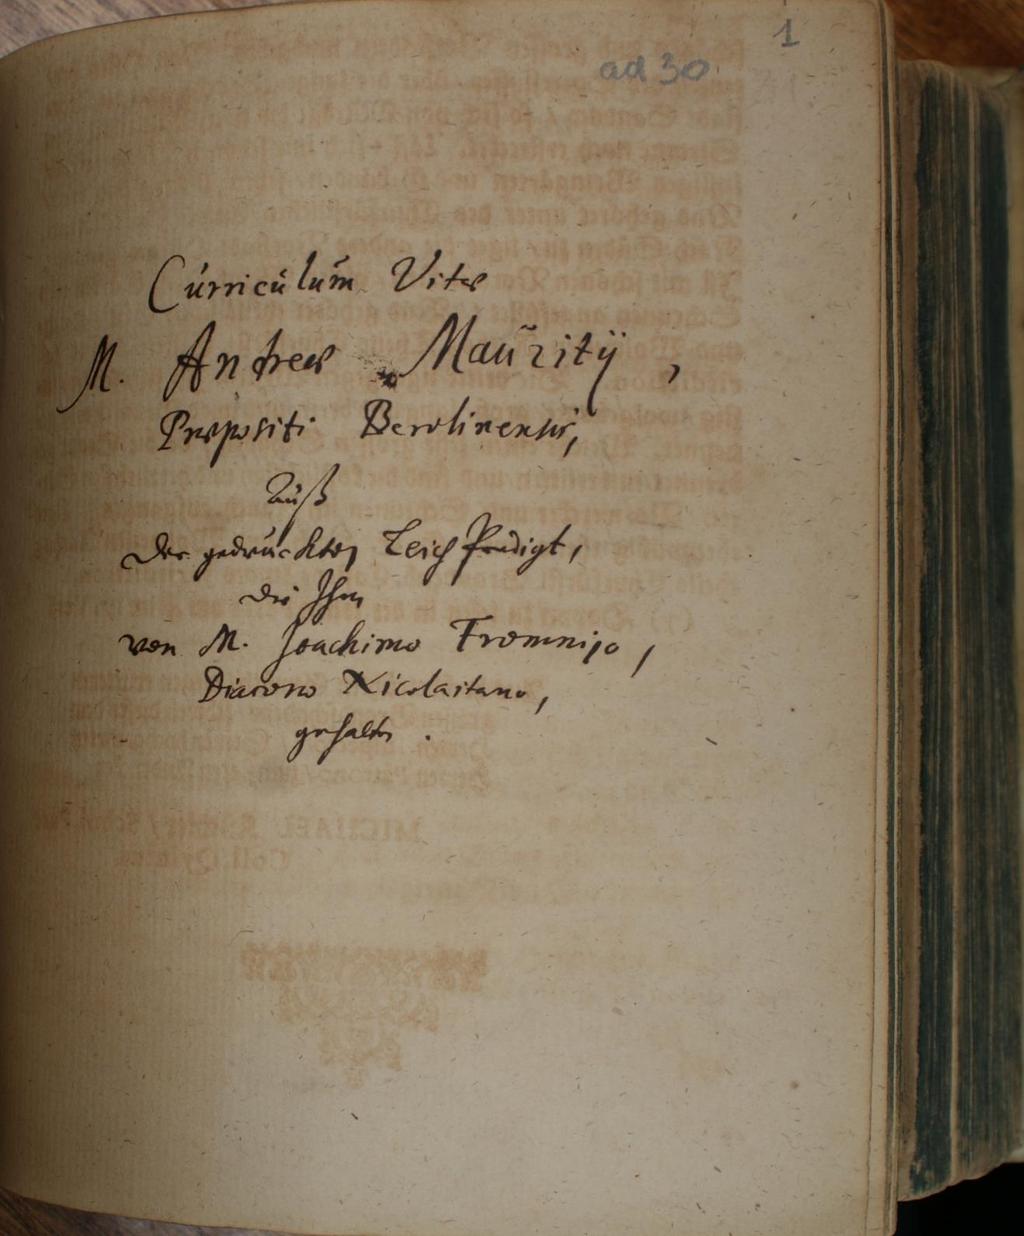 1
ad 30
Curriculum Vitæ
M. Andreæ Mauritÿ,
Præpositi Berolinensis,
Auß
der gedruckten Leich Predigt,
die Ihm
von M. Joachimo Frommio,
Diacono Nicolaitano,
gehalten.